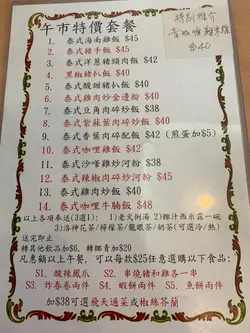 午市特價套餐
特別推介
$40
1. 泰式海南雞飯 $45
2. 泰式豬手飯 $45
3. 泰式洋蔥豬頸肉飯 $42
4. 黑椒豬扒飯 $40
5. 泰式豬扒酸甜飯 $40
6. 泰式雞肉炒金邊粉 $40
7. 泰式豆角肉碎配飯 $40
8. 泰式紫蘿雞肉炒飯 $40
9. 泰式香葉肉碎配飯 $42 (煎蛋加$5)
10. 泰式咖哩雞飯 $42
11. 泰式沙嗲雞炒河粉 $38
12. 泰式辣椒肉碎炒河粉 $38
13. 泰式雞肉炒飯 $40
14. 泰式咖哩牛腩飯 $48
以上各項奉送(3選1): 1)老火例湯 2)椰汁西米露一碗
3)洛神花茶/檸檬茶/龍眼茶/奶茶(可選冷/熱)
送完即止
轉其他飲品加$6, 轉椰青加$20
凡惠顧以上午餐, 可以每款$25任意選購以下食品:
S1. 酸辣鳳爪 S2. 串燒豬和雞各一串
S3. 炸春卷兩件 S4. 蝦餅兩件 S5. 魚餅兩件
加$38可選飛天通菜或椒絲芥蘭